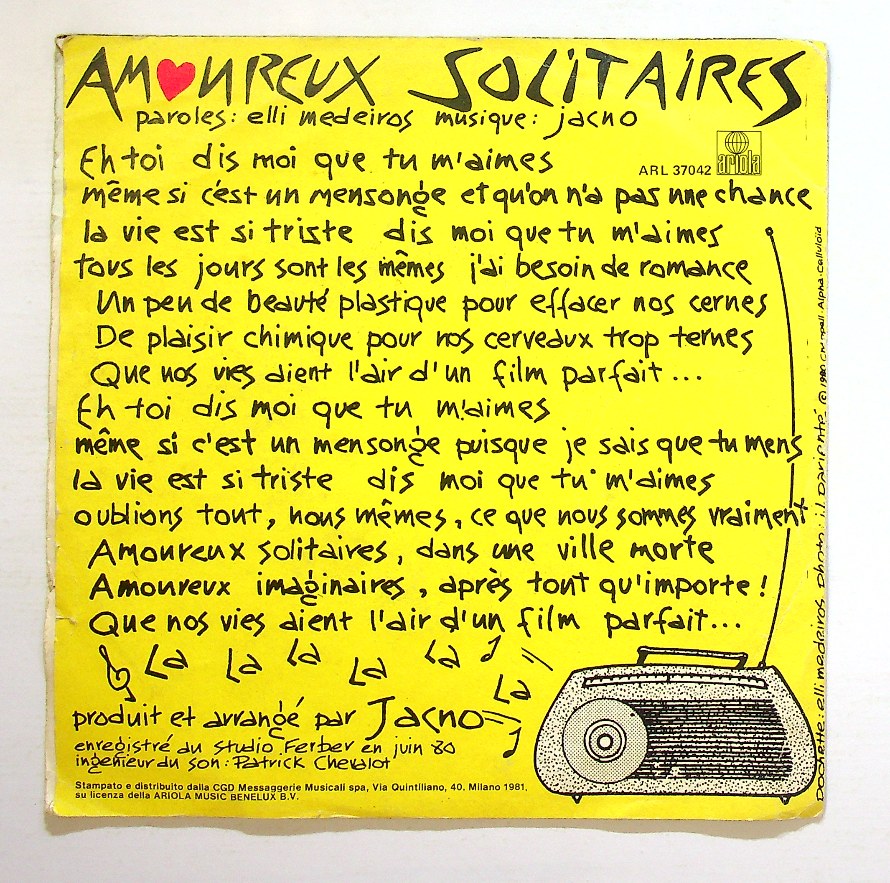 AM♥UREUX SOLITAIRES
paroles: elli medeiros musique: jacno
Eh toi dis moi que tu m'aimes
ARL 37042 ariola
même si c'est un mensonge et qu'on n'a pas une chance
la vie est si triste dis moi que tu m'aimes
tous les jours sont les mêmes j'ai besoin de romance
Un peu de beauté plastique pour effacer nos cernes
De plaisir chimique pour nos cerveaux trop ternes
Que nos vies aient l'air d'un film parfait...
Eh toi dis moi que tu m'aimes
même si c'est un mensonge puisque je sais que tu mens
la vie est si triste dis moi que tu m'aimes
oublions tout, nous mêmes, ce que nous sommes vraiment
Amoureux solitaires, dans une ville morte
Amoureux imaginaires, après tout qu'importe!
Que nos vies aient l'air d'un film parfait...
La La La La La La
produit et arrangé par Jacno
enregistré au studio Ferber en juin 80
ingénieur du son: Patrick Chevalot
Stampato e distribuito dalla CGD Messaggerie Musicali spa, Via Quintiliano, 40, Milano 1981,
su licenza della ARIOLA MUSIC BENELUX B.V.
elli medeiros photo: il © 1980 Alpha. Celluloïd